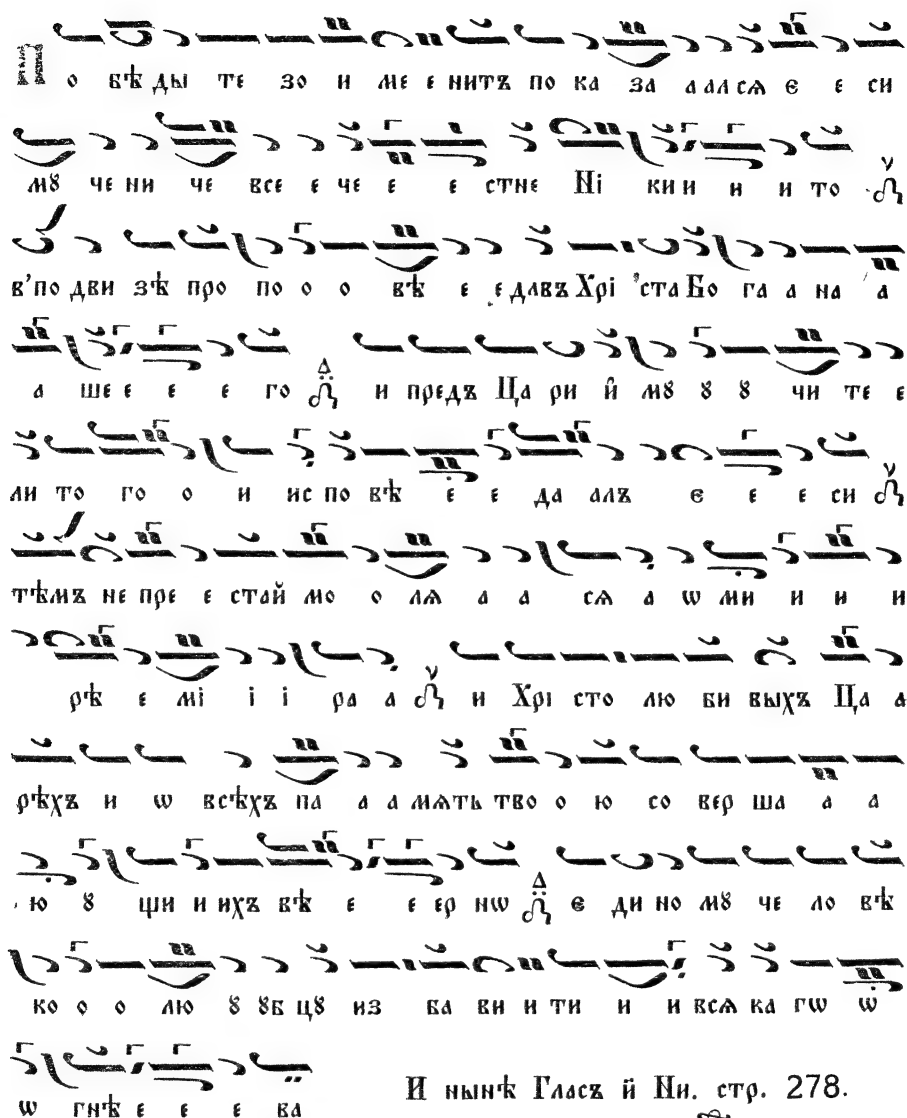 П о бѣ ды те зо и ме е нитъ по ка за а ал сѧ є е си
мꙋ че ни че все е че е е стне Ні ки и и и то
в’по дви зѣ про по о о вѣ е е давъ Хрі ’ста Бо га а на а
а ше е е е го и предъ Ца ри й мꙋ ꙋ ꙋ чи те е
ли то го о и ис по вѣ е е да алъ є е е си
тѣмъ не пре е стай мо о лѧ а а сѧ а ѡ ми и и и
рѣ е мі і і ра а и Хрі сто лю би выхъ Ца а
рѣхъ и ѡ всѣхъ па а а мѧть тво о ю со вер ша а а
ю ꙋ щи и ихъ вѣ е е ер нѡ є ди но мꙋ че ло вѣ
ко о о лю ꙋ ꙋб цꙋ из ба ви и ти и и всѧ ка гѡ ѡ
ѡ гнѣ е е е ва
И нынѣ Гласъ й Ни. стр. 278.